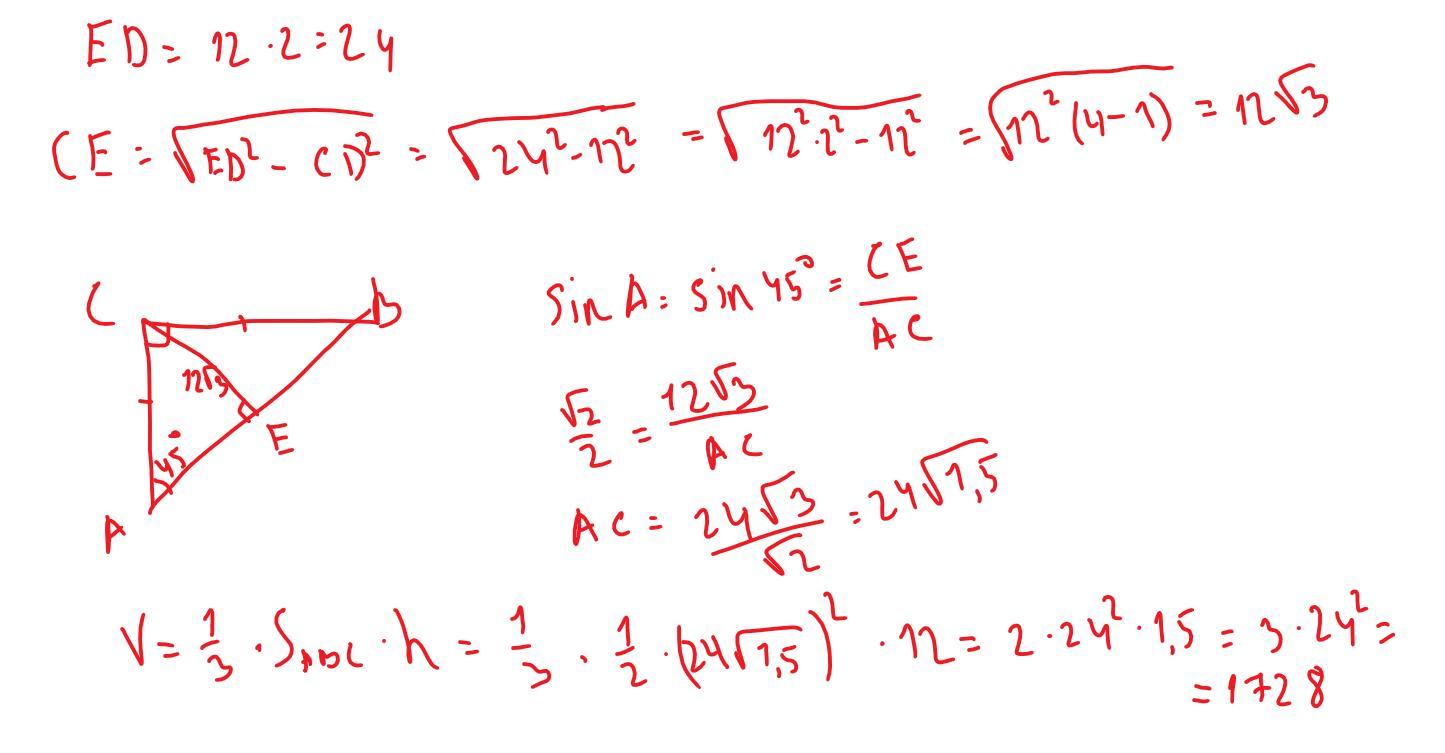 ED = 12 · 2 = 24
CE = √(ED² - CD²) = √(24² - 12²) = √(12² · 2² - 12²) = √(12² (4 - 1)) = 12√3
C
B
12√3
E
45°
A
sin A = sin 45° = CE/AC
√2/2 = 12√3/AC
AC = 24√3/√2 = 24√1,5
V = 1/3 · S ABC · h = 1/3 · 1/2 · (24√1,5)² · 12 = 2 · 24² · 1,5 = 3 · 24² =
= 1728